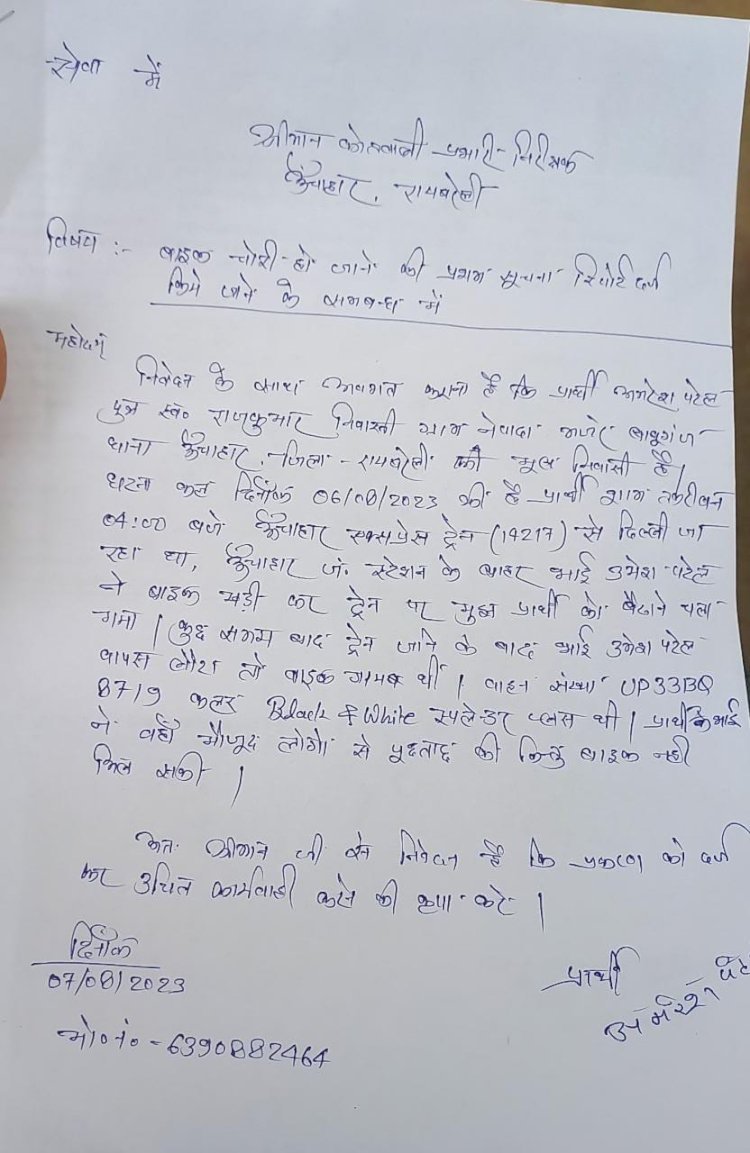 सेवा में
श्रीमान कोतवाली प्रभारी निरीक्षक
ऊँचाहार, रायबरेली
विषय :- बाइक चोरी हो जाने की प्रथम सूचना रिपोर्ट दर्ज
किये जाने के सम्बन्ध में
महोदय
निवेदन के साथ अवगत कराना है कि प्रार्थी अमरेश पटेल
पुत्र स्व० राजकुमार निवासी ग्राम नेवादा मजरे बाबूगंज
थाना ऊँचाहार, जिला - रायबरेली का मूल निवासी है।
घटना कल दिनाँक 06/08/2023 की है प्रार्थी शाम तकरीबन
04:00 बजे ऊँचाहार एक्सप्रेस ट्रेन (14217) से दिल्ली जा
रहा था, ऊँचाहार जं. स्टेशन के बाहर भाई उमेश पटेल
ने बाइक खड़ी कर ट्रेन पर मुझ प्रार्थी को बैठाने चला
गया। कुछ समय बाद ट्रेन जाने के बाद भाई उमेश पटेल
वापस लौटा तो बाइक गायब थी। वाहन संख्या UP33BQ
8719 कलर Black & White स्पलेन्डर प्लस थी। प्रार्थी के भाई
ने वहाँ मौजूद लोगों से पूछताछ की किन्तु बाइक नही
मिल सकी।
अतः श्रीमान जी से निवेदन है कि प्रकरण को दर्ज
कर उचित कार्यवाही करने की कृपा करे।
दिनाँक
07/08/2023
प्रार्थी
अमरेश पटेल
मो०नं० - 6390882464